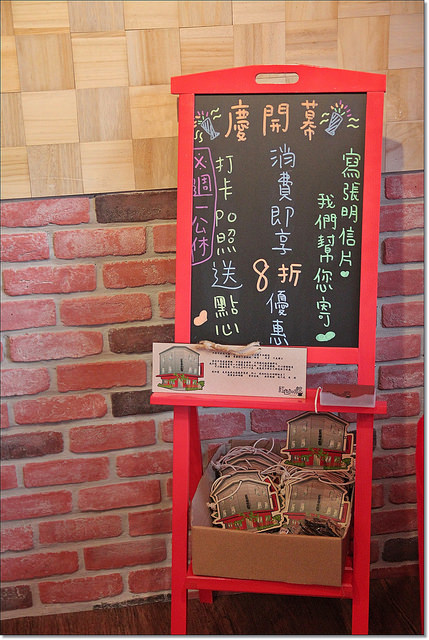 慶開幕
寫張明信片
我們幫您寄
消費即享
8折優惠
打卡po照送點心
X週一公休